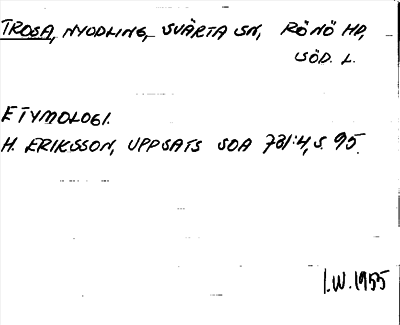 TROSA, NYODLING, SVÄRTA SN, RÖNÖ HD,
SÖD. L.
ETYMOLOGI.
H. ERIKSSON, UPPSATS SOA 731:4, S. 95.
I.W. 1955